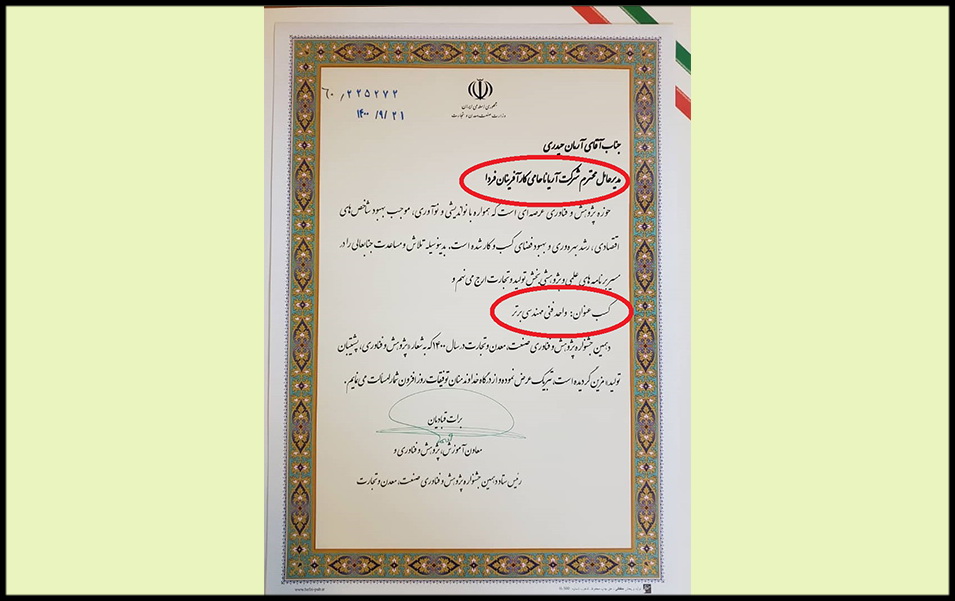 ۶۰/۲۲۵۲۷۲
۱۴۰۰/۹/۲۱
جمهوری اسلامی ایران
وزارت صنعت، معدن و تجارت
جناب آقای آرمان حیدری
مدیرعامل محترم شرکت آریانا حامی کارآفرینان فردا
حوزه پژوهش و فناوری عرصه ای است که همواره با نواندیشی و نوآوری، موجب بهبود شاخص های
اقتصادی، رشد بهره وری و بهبود فضای کسب و کار شده است. بدینوسیله تلاش و مساعدت جنابعالی را در
مسیر برنامه های علمی و پژوهشی بخش تولید و تجارت ارج می نهم و
کسب عنوان: واحد فنی مهندسی برتر
دهمین جشنواره پژوهش و فناوری صنعت، معدن و تجارت در سال ۱۴۰۰ که به شعار «پژوهش و فناوری، پشتیبان
تولید» مزین گردیده است، تبریک عرض نموده و از درگاه خداوند منان توفیقات روزافزون شما را مسألت می نمایم.
برات قبادیان
معاون آموزش، پژوهش و فناوری و
رئیس ستاد دهمین جشنواره پژوهش و فناوری صنعت، معدن و تجارت